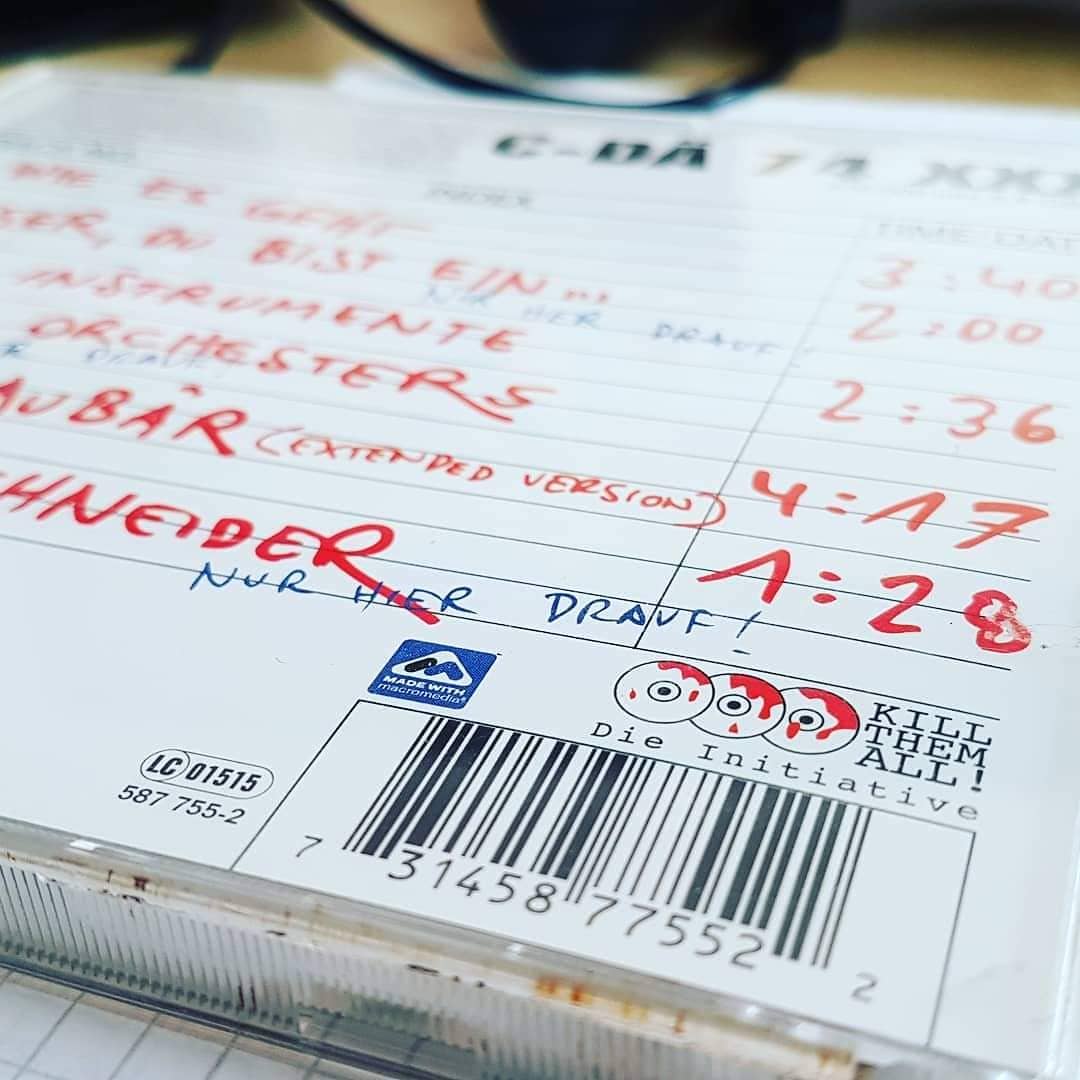 C-DÄ 74 XXX
INDEX
TIME DAT
WIE ES GEHT 3:40
SER, DU BIST EIN... 2:00
NUR HIER DRAUF!
INSTRUMENTE
ORCHESTERS 2:36
R DRAUF!
AUBÄR (EXTENDED VERSION) 4:17
HNEIDER 1:28
NUR HIER DRAUF!
MADE WITH
macromedia®
KILL
THEM
ALL!
Die Initiative
LC 01515
587 755-2
7 31458 77552 2